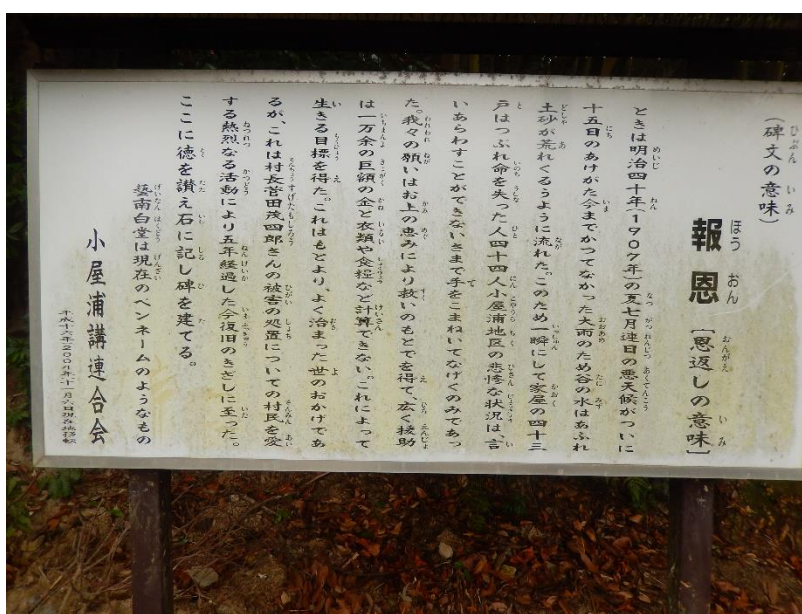 （碑文の意味）
報恩［恩返しの意味］
ときは明治四十年（1907年）の夏七月連日の悪天候がついに
十五日のあけがた今までかつてなかった大雨のため谷の水はあふれ
土砂が荒れくるうように流れた。このため一瞬にして家屋の四十三
戸はつぶれ命を失った人四十四人小屋浦地区の悲惨な状況は、言
いあらわすことができないさまで手をこまねいてなげくのみであっ
た。我々の願いはお上の恵みにより救いのもとでを得て、広く援助
は一万余の巨額の金と衣類や食糧など計算できない。これによって
生きる目標を得た。これはもとより、よく治まった世のおかげであ
るが、これは村長菅田茂四郎さんの被害の処置についての村民を愛
する熱烈なる活動により五年経過した今復旧のきざしに至った。
ここに徳を讃え石に記し碑を建てる。
藝南白堂は現在のペンネームのようなもの
小屋浦講連合会
平成十六年（2004年）十一月六日現在地移転